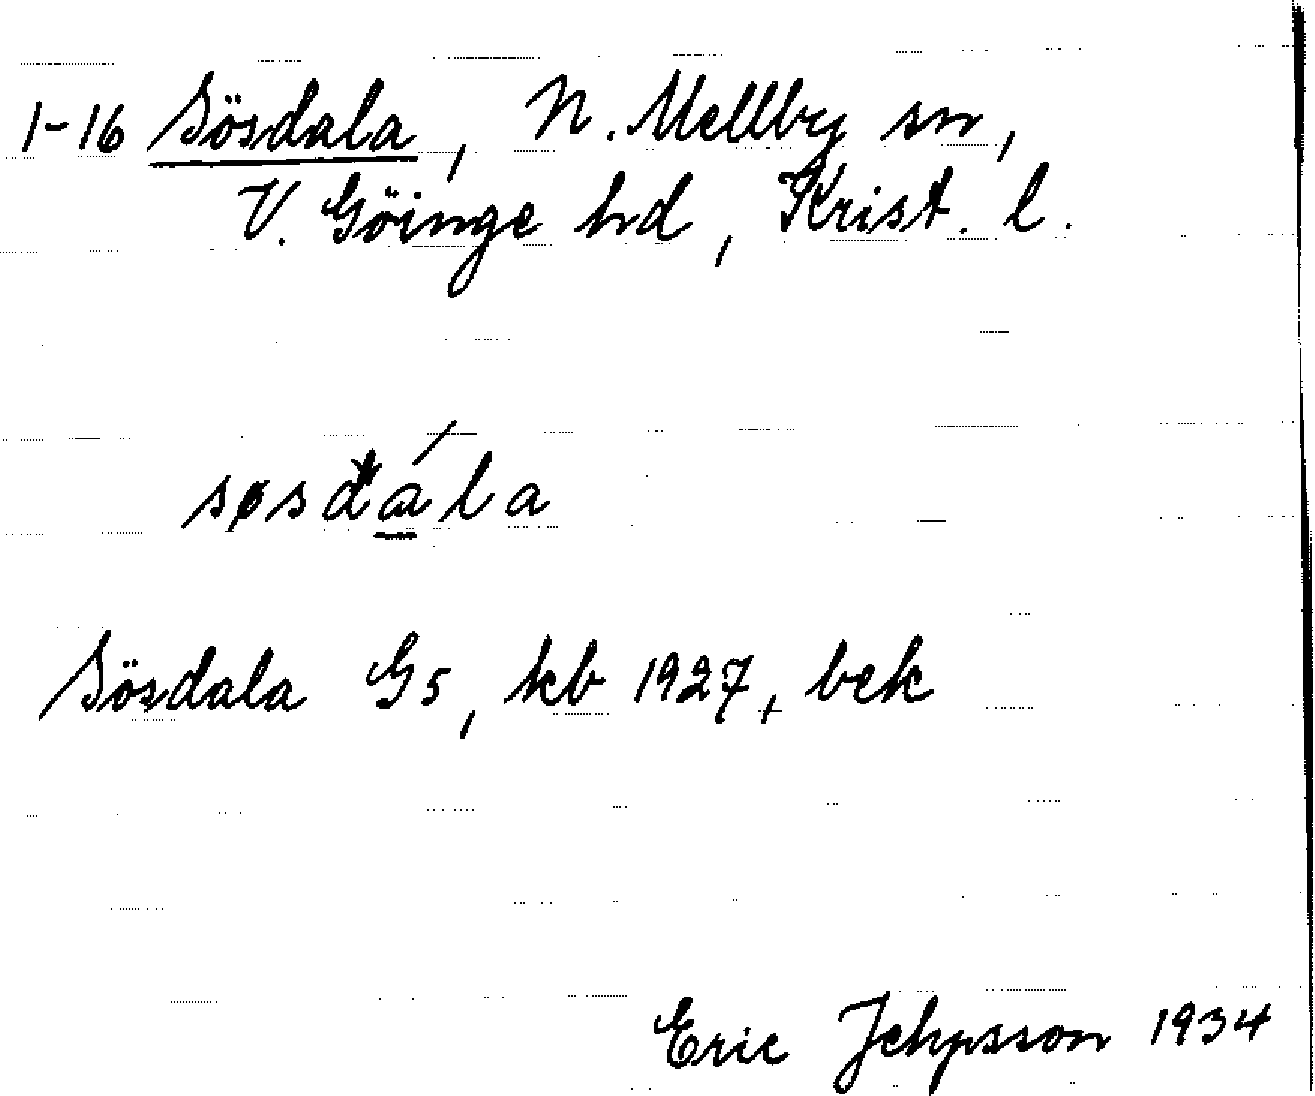 1-16 Sösdala, N. Mellby sn,
V. Göinge hd, Krist. l.
søsdála
Sösdala Gs, kb 1927, bek
Eric Jepsson 1934